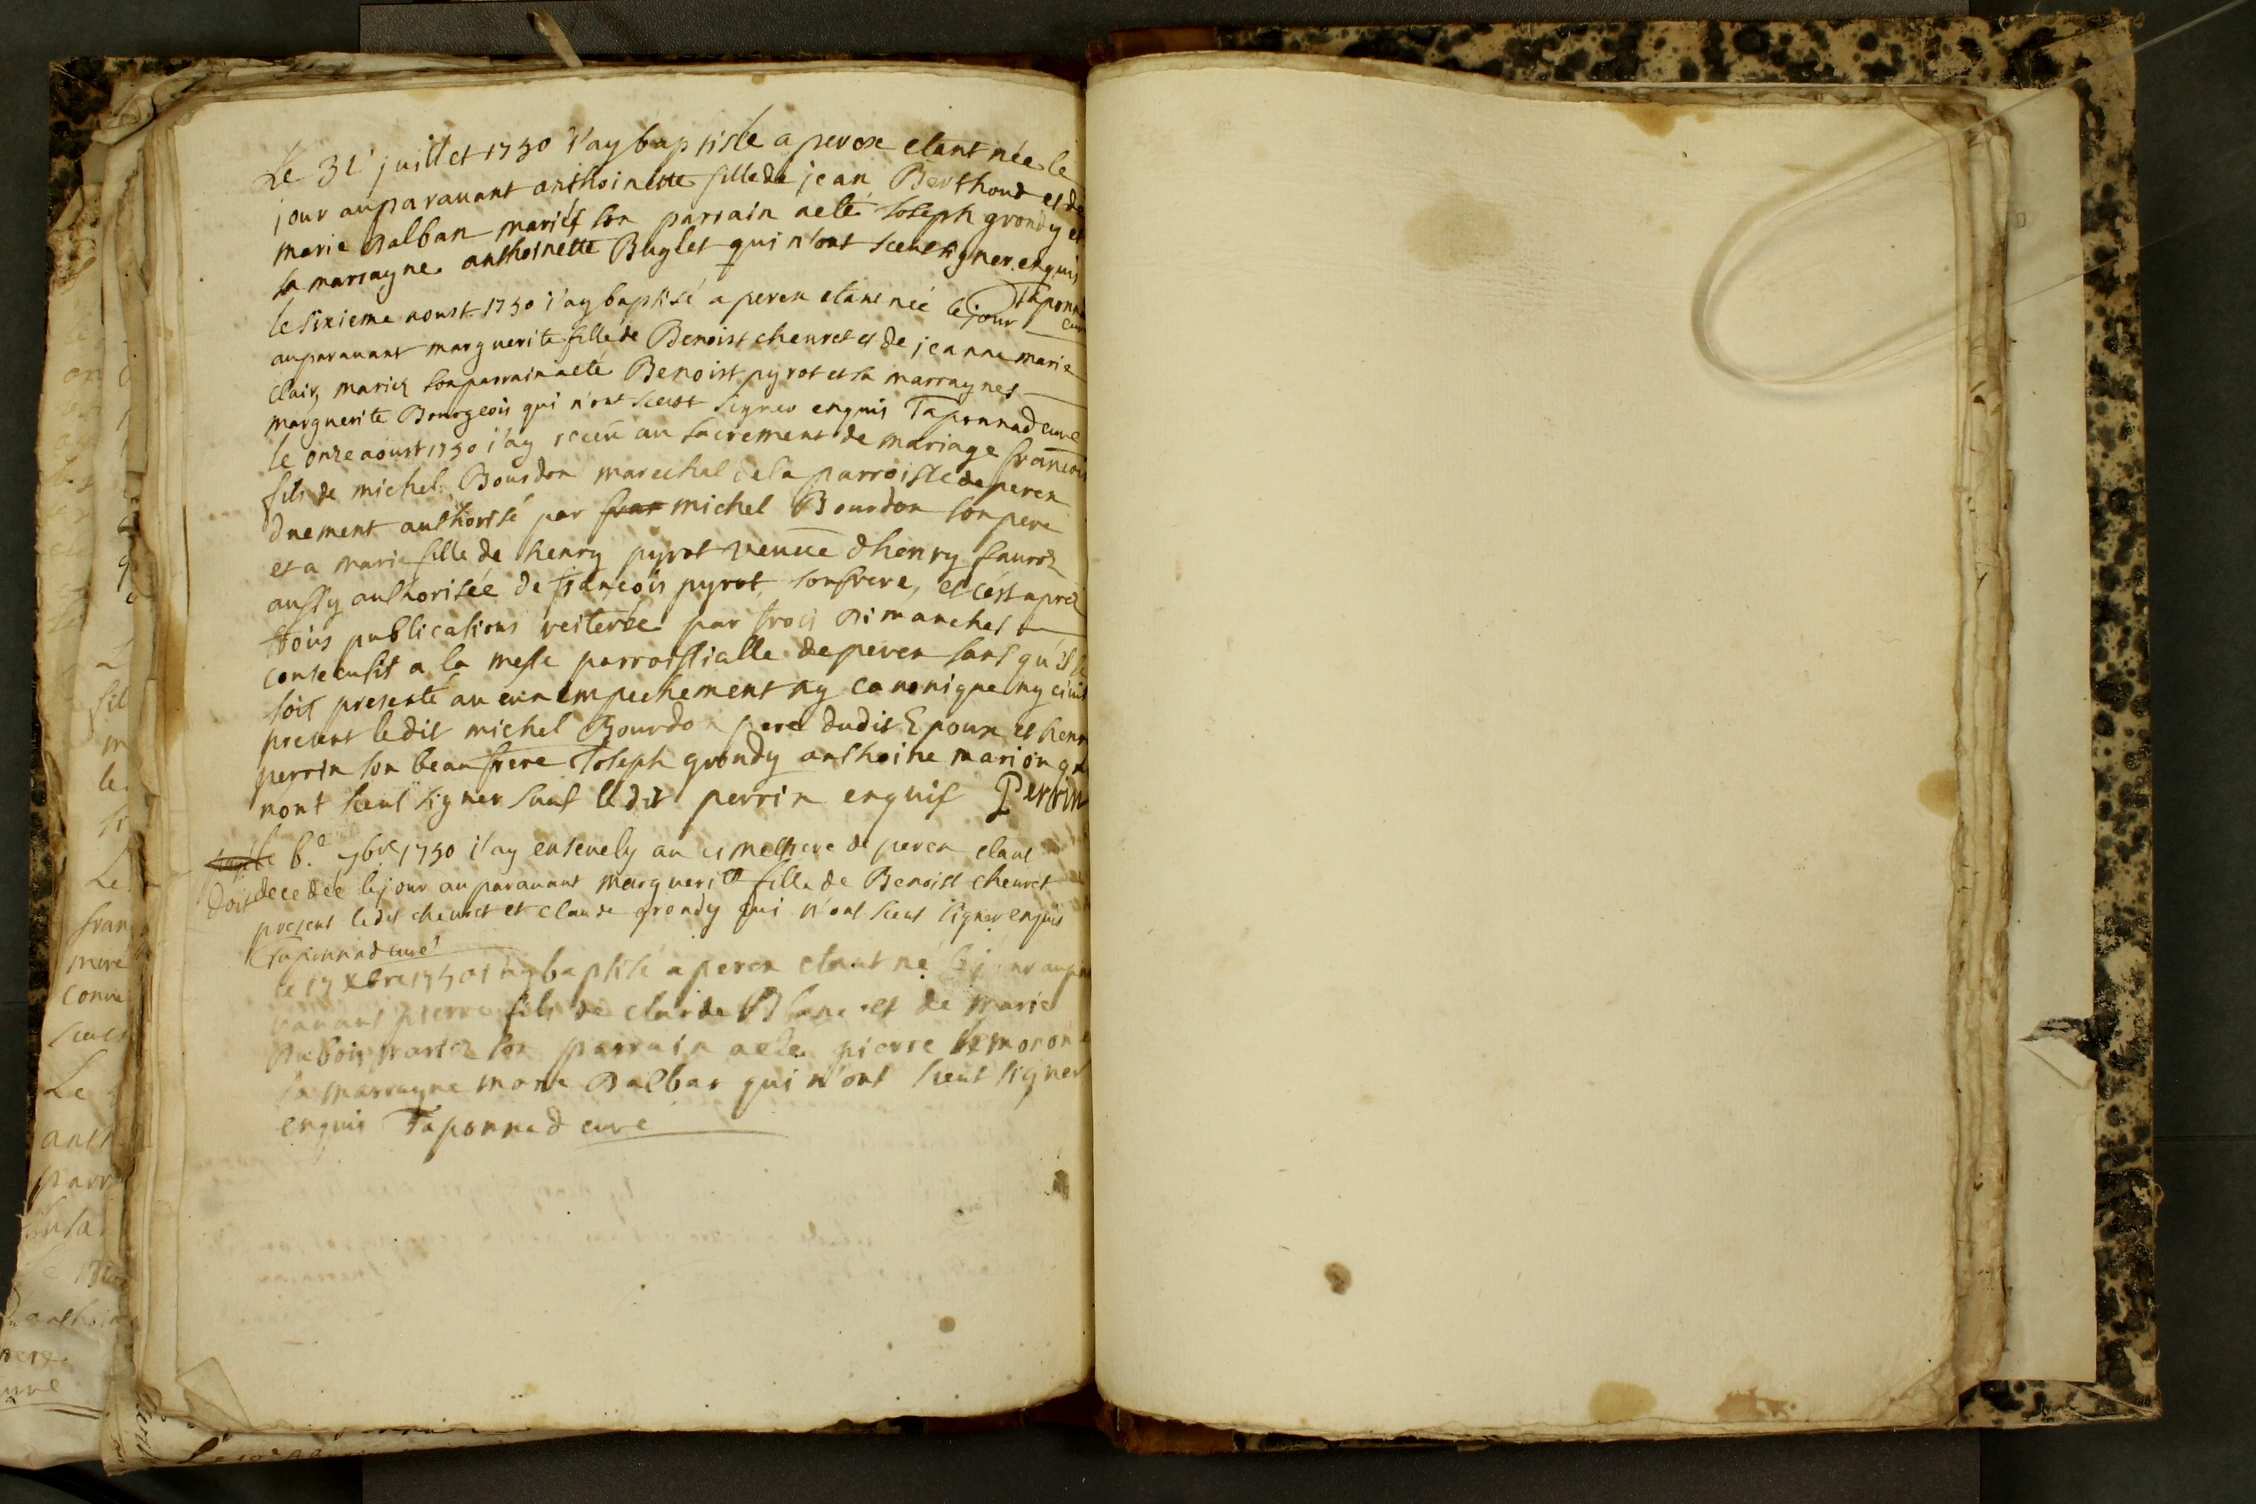 Le 31e juillet 1730 i'ay baptisée a perex etant née le
jour auparavant anthoinette fille de jean Berthoud et de
marie Dalban mariés son parrain aeté Joseph grondy et
sa marrayne anthoinette Buglet qui n'ont sceut signer enquis
Taponnad
curé
le sixieme aoust 1730 i'ay baptisé a perex etant née le jour
auparavant marguerite fille de Benoist chevret et de jeanne marie
Clair mariez son parrain aeté Benoist pyrot et sa marrayne
marguerite Bourgeois qui n'ont sceut signer enquis Taponnad curé
le onze aoust 1730 i'ay receu au sacrement de mariage françois
fils de michel Bourdon marechal de la parroisse de perex
duement authorisé par michel Bourdon son pere
et a marie fille de henry pyrot veuve d'henry
aussy authorisée de françois pyrot, son frere, et c'ést apréz
trois publications reiterée par trois dimanches
consecutifs a la messe parroissialle de perex sans qu'il se
soit presenté aucun empechement ny canonique ny civil
present ledit michel Bourdon pere dudit Epoux et henry
perrin son beau frere Joseph grondy anthoine marion qui
n'ont sceut signer sauf ledit perrin enquis Perrin
le 6.e 7bre 1730 i'ay ensevely au cimethiere de perex etant
decedée le jour auparavant marguerite fille de Benoist chevret
present ledit chevret et claude grondy qui n'ont sceut signer enquis
Taponnad curé
le 17 Xbre 1730 i'ay baptisé a perex etant né le jour aupa
ravant pierre fils de claude Blanc et de marie
Dubois mariez son parrain aeté pierre
sa marrayne marie Dalban qui n'ont sceut signer
enquis Taponnad curé